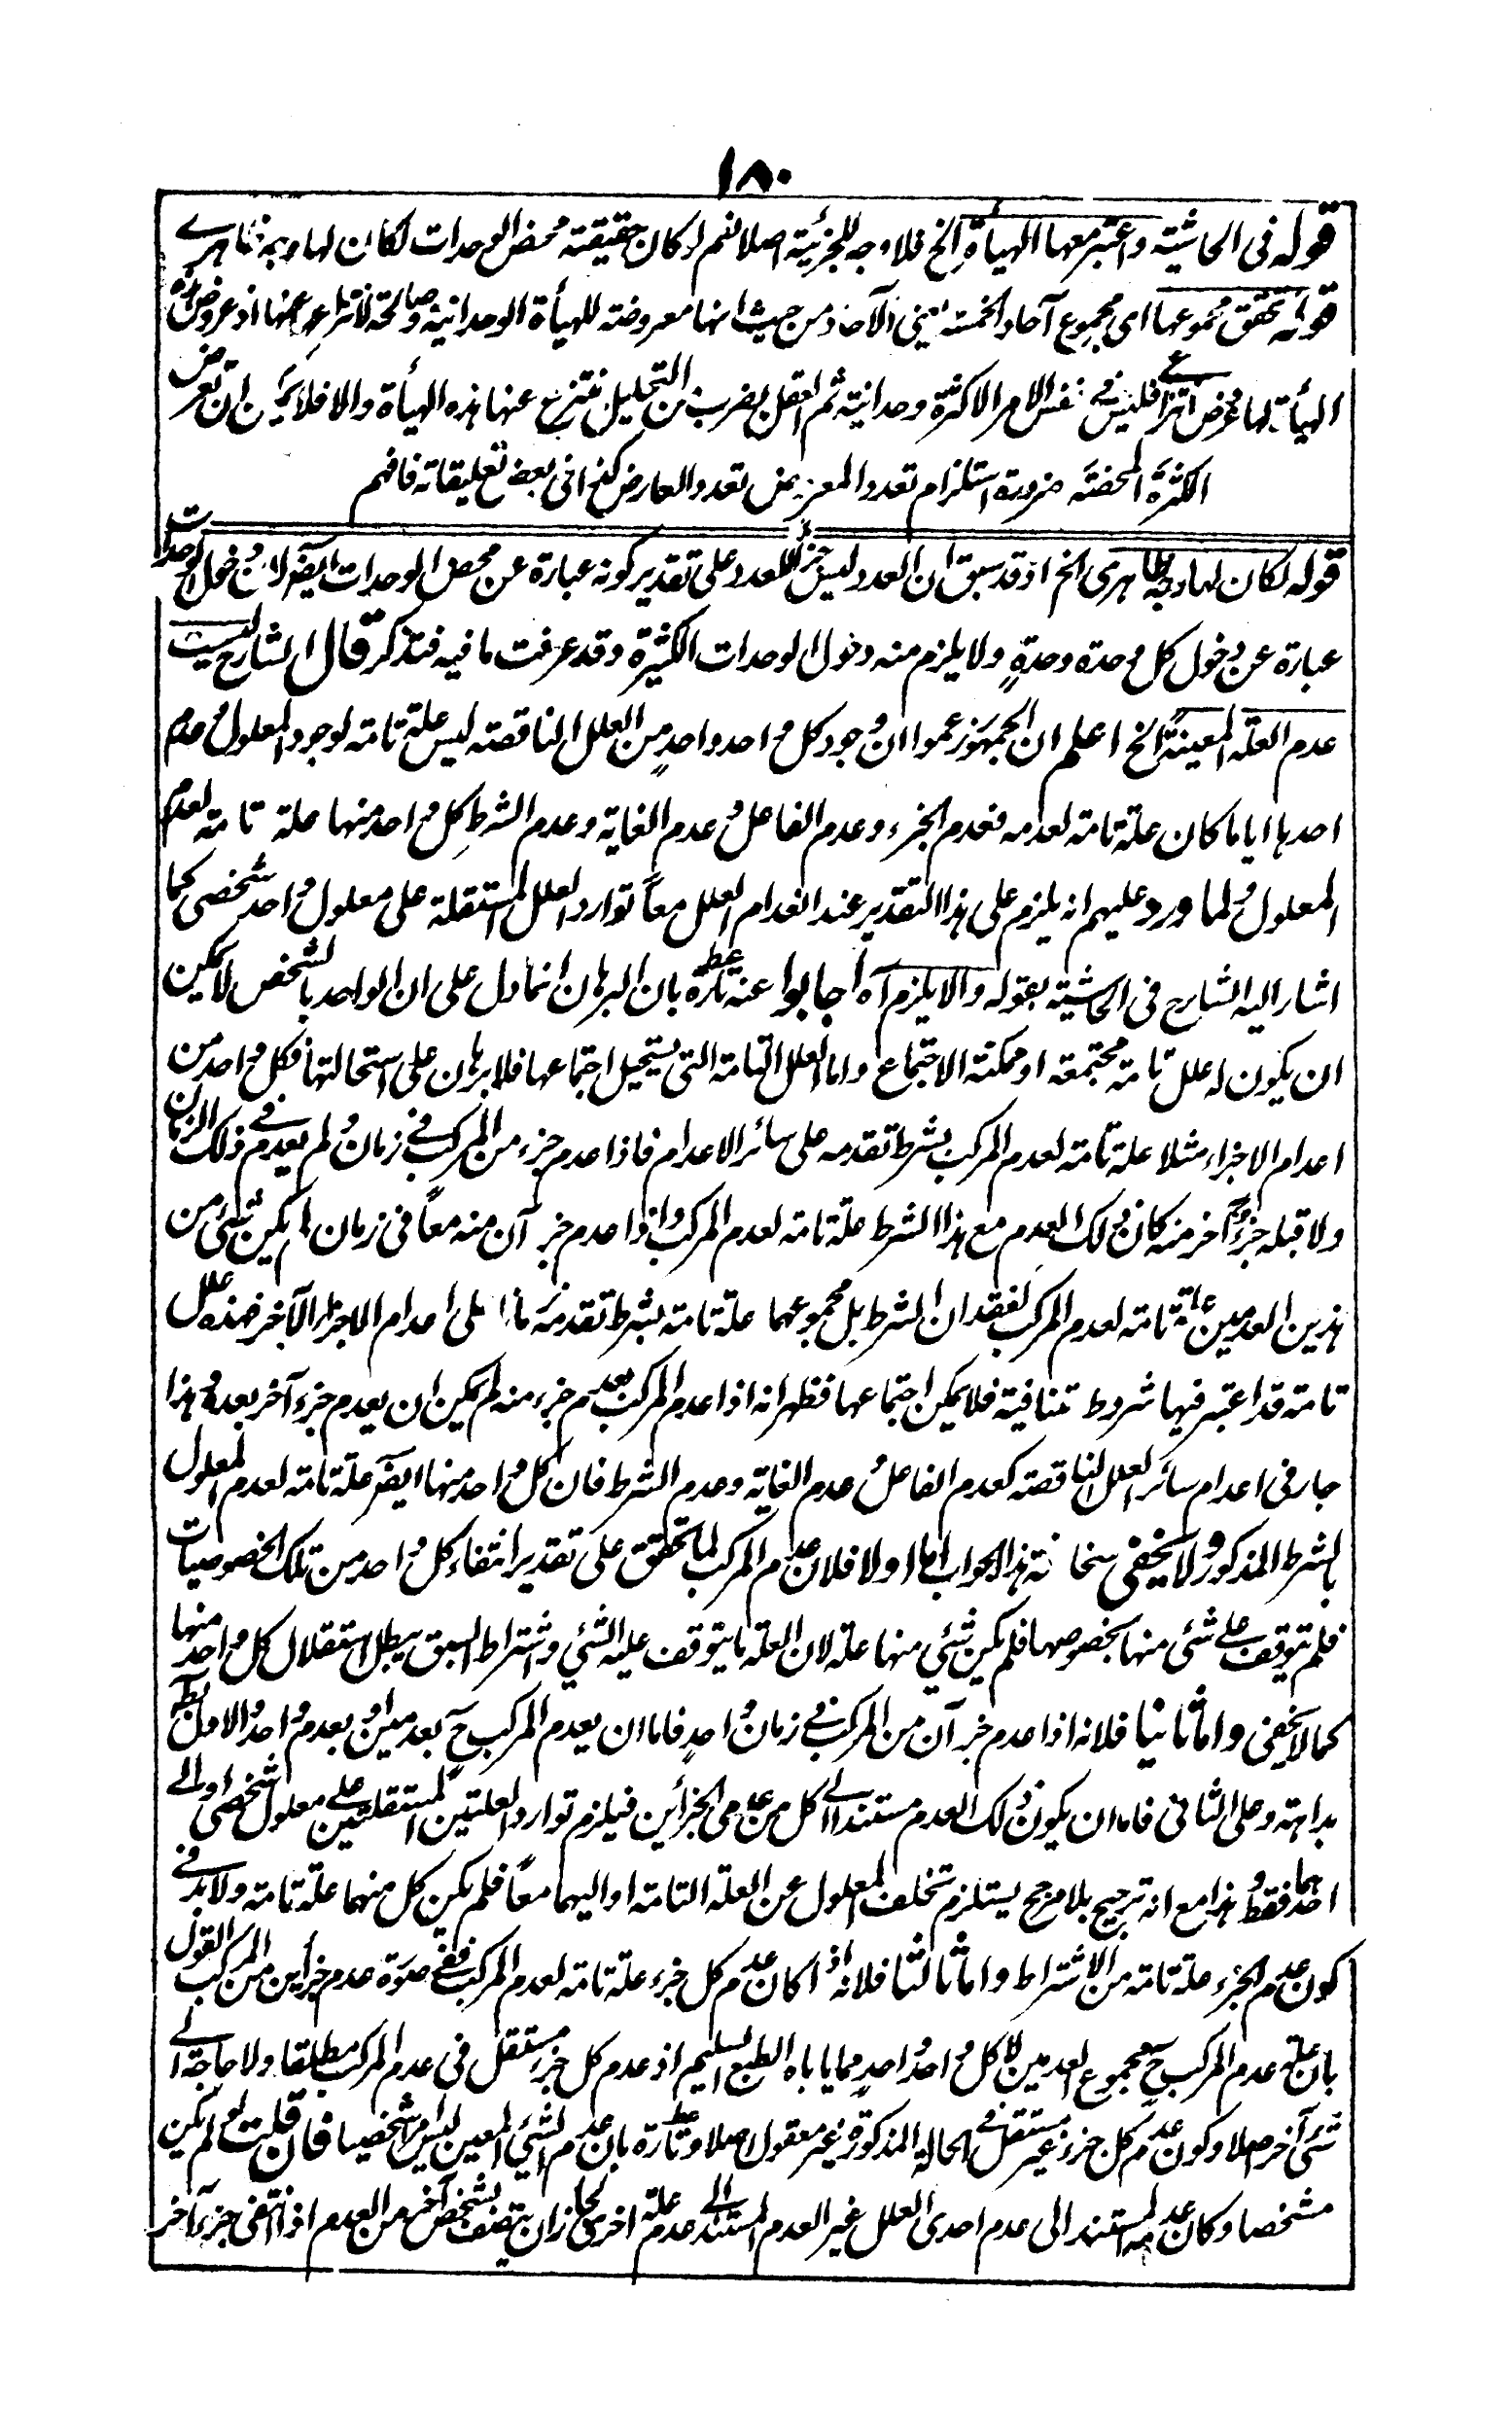 ١٨٠
قوله فى الحاشية واعتبر معها الهيأة الخ فلا وجه للجزئية اصلا نعم لو كان حقيقته محض الوحدات لكان لها وجه ظاهرے
قوله تحقق مجموعها اى مجموع آحاد الخمسة يعنى الآحاد من حيث انها معروضة للهيأة الوحدانية وصالحة لانتزاعها عنها اذ عروض هذه
الهيأة لها محض انتزاعے فليس فى نفس الامر الا كثرة وحدانية ثم العقل بضرب من التحليل ينتزع عنها هذه الهيأة والا فلا يمكن ان تعرض
الكثرة المحضة ضرورة استلزام تعدد المعروض تعدد العارض كذا فى بعض تعليقاته فافهم
قوله لكان لها وجه ظاهرى الخ اذ قد سبق ان العدد ليس جزأ للعدد على تقدير كونه عبارة عن محض الوحدات ايضا لان دخول الوحدات
عبارة عن دخول كل وحدة وحدةٍ ولا يلزم منه دخول الوحدات الكثيرة وقد عرفت ما فيه فتذكر قال الشارح ليست
عدم العلة المعينة الخ اعلم ان الجمهور زعموا ان وجود كل واحد واحدٍ من العلل الناقصة ليس علة تامة لوجود المعلول وعدم
احدها ايا ما كان علة تامة لعدمه فعدم الجزء وعدم الفاعل وعدم الغاية وعدم الشرط كل واحد منها علة تامة لعدم
المعلول ولما ورد عليهم انه يلزم على هذا التقدير عند انعدام العلل معاً توارد العلل المستقلة على معلول واحد شخصى كما
اشار اليه الشارح فى الحاشية بقوله والا يلزم آه اجابوا عنه تارة بان البرهان انما دل على ان الواحد بالشخص لا يمكن
ان يكون له علل تامة مجتمعة او ممكنة الاجتماع واما العلل التامة التى يستحيل اجتماعها فلا برهان على استحالتها فكل واحد من
اعدام الاجزاء مثلا علة تامة لعدم المركب بشرط تقدمه على سائر الاعدام فاذا عدم جزء من المركب فى زمان ولم يعدم فى ذلك الزمان
ولا قبله جزء آخر منه كان ذلك العدم مع هذا الشرط علة تامة لعدم المركب واذا عدم جزءآن منه معاً فى زمان لم يكن شئ من
هذين العدمين علة تامة لعدم المركب لفقدان الشرط بل مجموعهما علة تامة بشرط تقدمهما على اعدام الاجزاء الآخر فهذه علل
تامة قد اعتبر فيها شروط متنافية فلا يمكن اجتماعها فظهر انه اذا عدم المركب بعدم جزء منه لم يمكن ان يعدم جزء آخر بعده وهذا
جار فى اعدام سائر العلل الناقصة كعدم الفاعل وعدم الغاية وعدم الشرط فان كل واحد منها ايضا علة تامة لعدم المعلول
بالشرط المذكور ولا يخفى سخافة هذا الجواب اما اولا فلان عدم المركب لما تحقق على تقدير انتفاء كل واحد من تلك الخصوصيات
فلم يتوقف على شئ منها بخصوصها فلم يكن شئ منها علة لان العلة ما يتوقف عليه الشئ واشتراط السبق يبطل استقلال كل واحد منها
كما لا يخفى واما ثانيا فلانه اذا عدم جزءآن من المركب فى زمان واحدٍ فاما ان يعدم المركب ح بعدمين او بعدم واحد والاول بط
بداهة وعلى الثانى فاما ان يكون ذلك العدم مستندا الى كل من عدمى الجزأين فيلزم توارد العلتين المستقلتين على معلول شخصى او الے
احدهما فقط وهذا مع انه ترجيح بلا مرجح يستلزم تخلف المعلول عن العلة التامة او اليهما معاً فلم يكن كل منهما علة تامة ولا بد فے
كون عدم الجزء علة تامة من الاشتراط واما ثالثا فلانه اذا كان عدم كل جزء علة تامة لعدم المركب ففى صورة عدم جزأين من المركب القول
بان علة عدم المركب ح مجموع العدمين لا كل واحد واحدٍ مما ياباه الطبع السليم اذ عدم كل جزء مستقل فى عدم المركب مطلقا ولا حاجة الے
شئ آخر اصلا وكون عدم كل جزء غير مستقل فى الحالة المذكورة غير معقول اصلا وتارة بان عدم الشئ المعين ليس امرا شخصيا فان قلت لو لم يكن
مشخصا وكان عدمه المستند الى عدم احدى العلل غير العدم المستند الى عدم علة اخرى لجاز ان يتصف بشخص آخر من العدم اذا انتفى جزء آخر